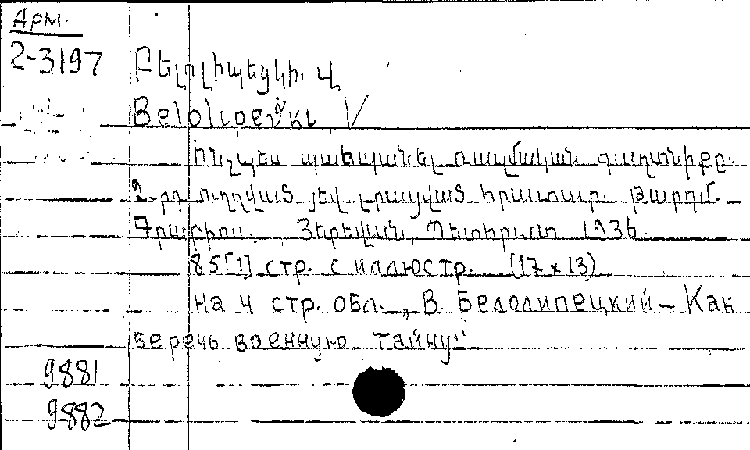 Арм.
2-3197
Բելոլիպեցկի. Վ.
Belolipecki V
Ինչպես պահպանել ռազմական գաղտնիքը.
2-րդ ուղղված յեվ լրացված հրատար. Թարգմ.
Գրաբիս. Յերեվան, Պետհրատ 1936
85[1] стр. с иллюстр. (17×13)
На 4 стр. обл. „В Белолипецкий – Как
беречь военную тайну"
9881
9882